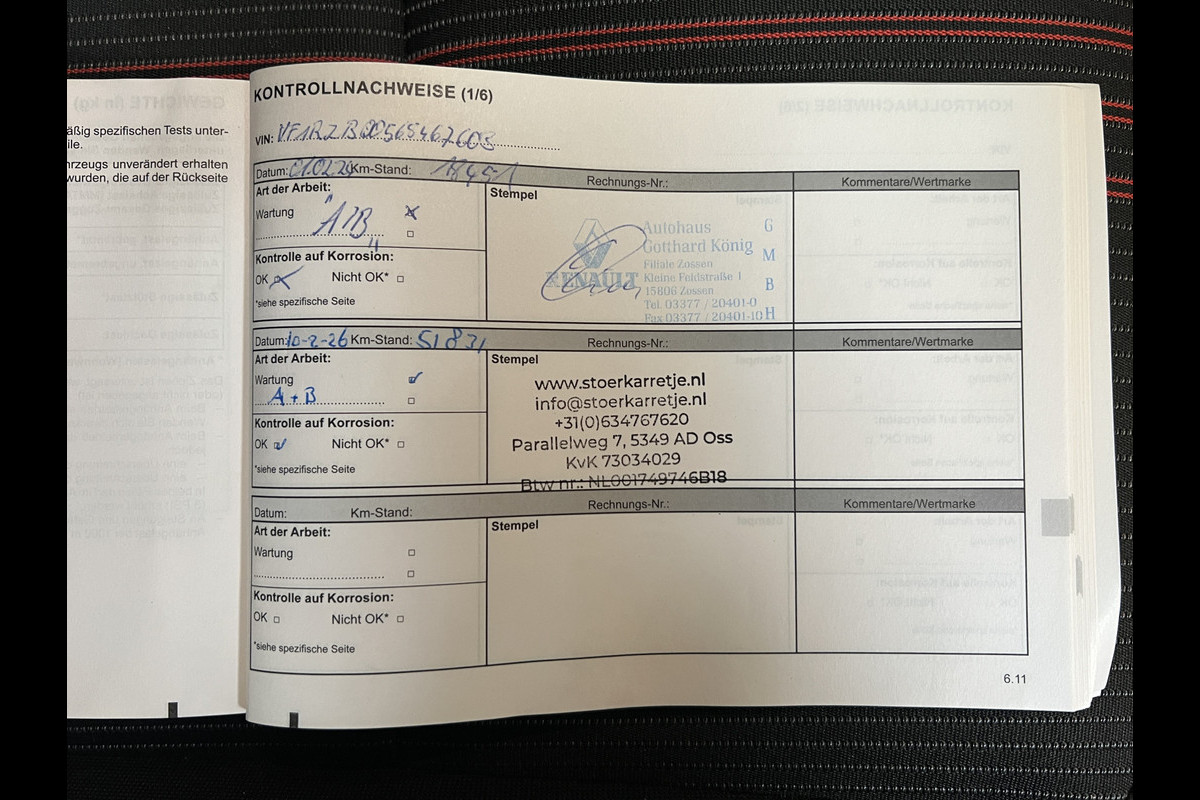 äßig spezifischen Tests unter-
ile.
hrzeugs unverändert erhalten
wurden, die auf der Rückseite
KONTROLLNACHWEISE (1/6)
VIN: VF1RZB00565467603
Datum: 01.02.24 Km-Stand: 18451 Rechnungs-Nr.: Kommentare/Wertmarke
Art der Arbeit:
Stempel
Wartung "A/B"
Kontrolle auf Korrosion:
OK Nicht OK*
*siehe spezifische Seite
RENAULT
Autohaus
Gotthard König
Filiale Zossen
Kleine Feldstraße 1
15806 Zossen
Tel. 03377 / 20401-0
Fax 03377 / 20401-10
G
M
B
H
Datum: 10-2-26 Km-Stand: 51831 Rechnungs-Nr.: Kommentare/Wertmarke
Art der Arbeit:
Stempel
Wartung
A + B
Kontrolle auf Korrosion:
OK Nicht OK*
*siehe spezifische Seite
www.stoerkarretje.nl
info@stoerkarretje.nl
+31(0)634767620
Parallelweg 7, 5349 AD Oss
KvK 73034029
Btw nr.: NL001749746B18
Datum: Km-Stand: Rechnungs-Nr.: Kommentare/Wertmarke
Art der Arbeit:
Stempel
Wartung
Kontrolle auf Korrosion:
OK Nicht OK*
*siehe spezifische Seite
6.11